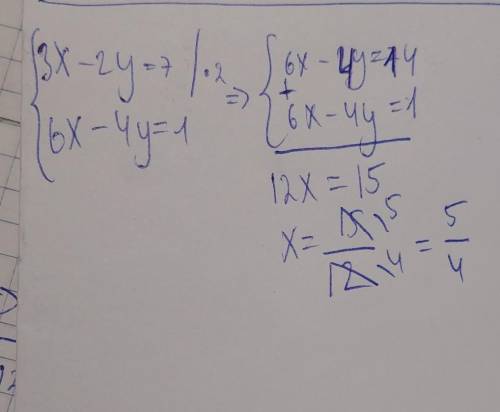 3x-2y=7 |·2
6x-4y=1
=> 6x-4y=14
+
6x-4y=1
12x=15
x=15/12 5 4 = 5/4